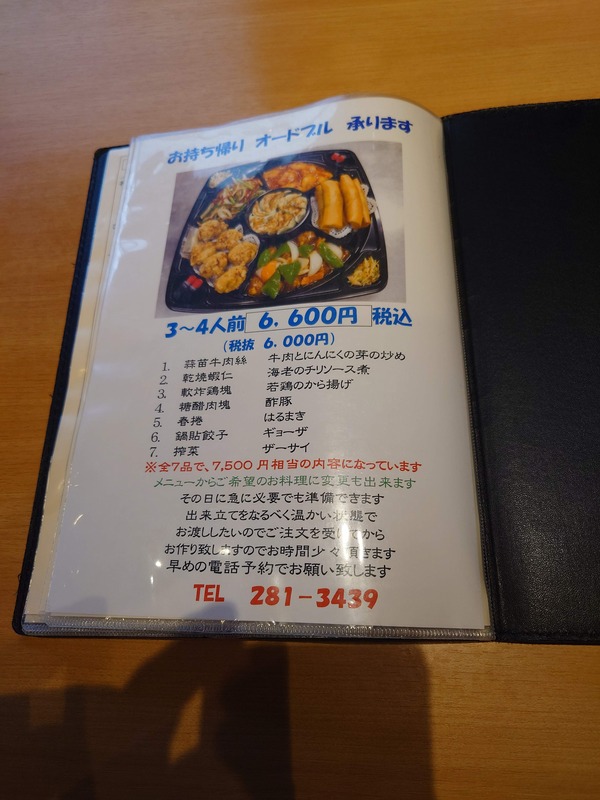 お持ち帰り オードブル 承ります
3～4人前 6,600円 税込
(税抜 6,000円)
1. 蒜苗牛肉絲 牛肉とにんにくの芽の炒め
2. 乾焼蝦仁 海老のチリソース煮
3. 軟炸鶏塊 若鶏のから揚げ
4. 糖醋肉塊 酢豚
5. 春捲 はるまき
6. 鍋貼餃子 ギョーザ
7. 搾菜 ザーサイ
※全7品で、7,500円相当の内容になっています
メニューからご希望のお料理に変更も出来ます
その日に急に必要でも準備できます
出来立てをなるべく温かい状態で
お渡ししたいのでご注文を受けてから
お作り致しますのでお時間少々頂きます
早めの電話予約でお願い致します
TEL 281-3439